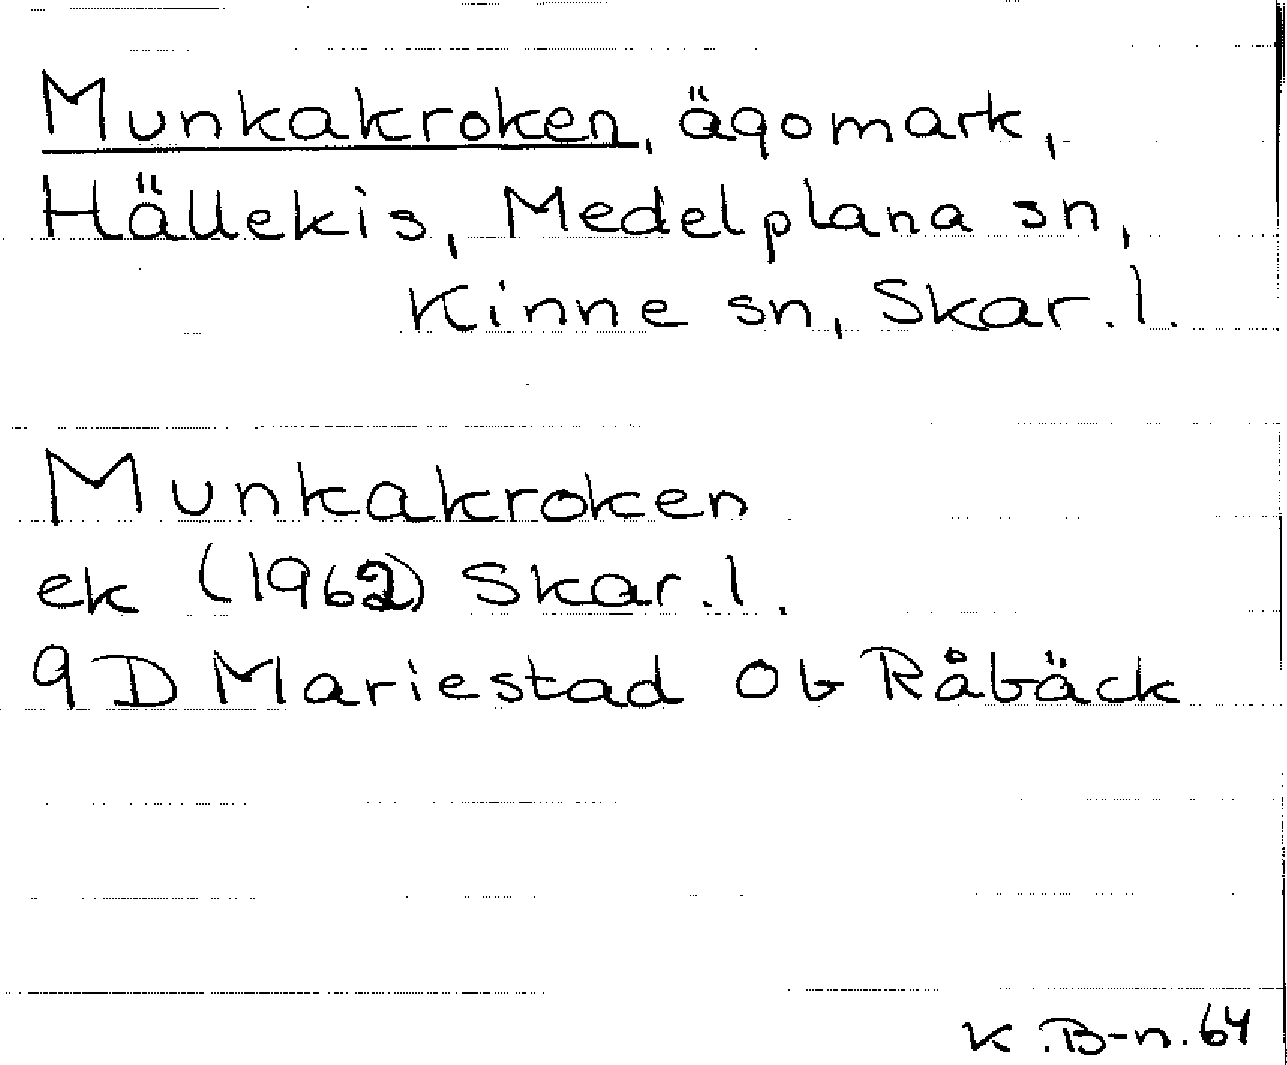 Munkakroken, ägomark,
Hällekis, Medelplana sn,
Kinne sn, Skar.l.
Munkakroken
ek (1962) Skar.l.
9D Mariestad Ob Råbäck
K.B-n.64